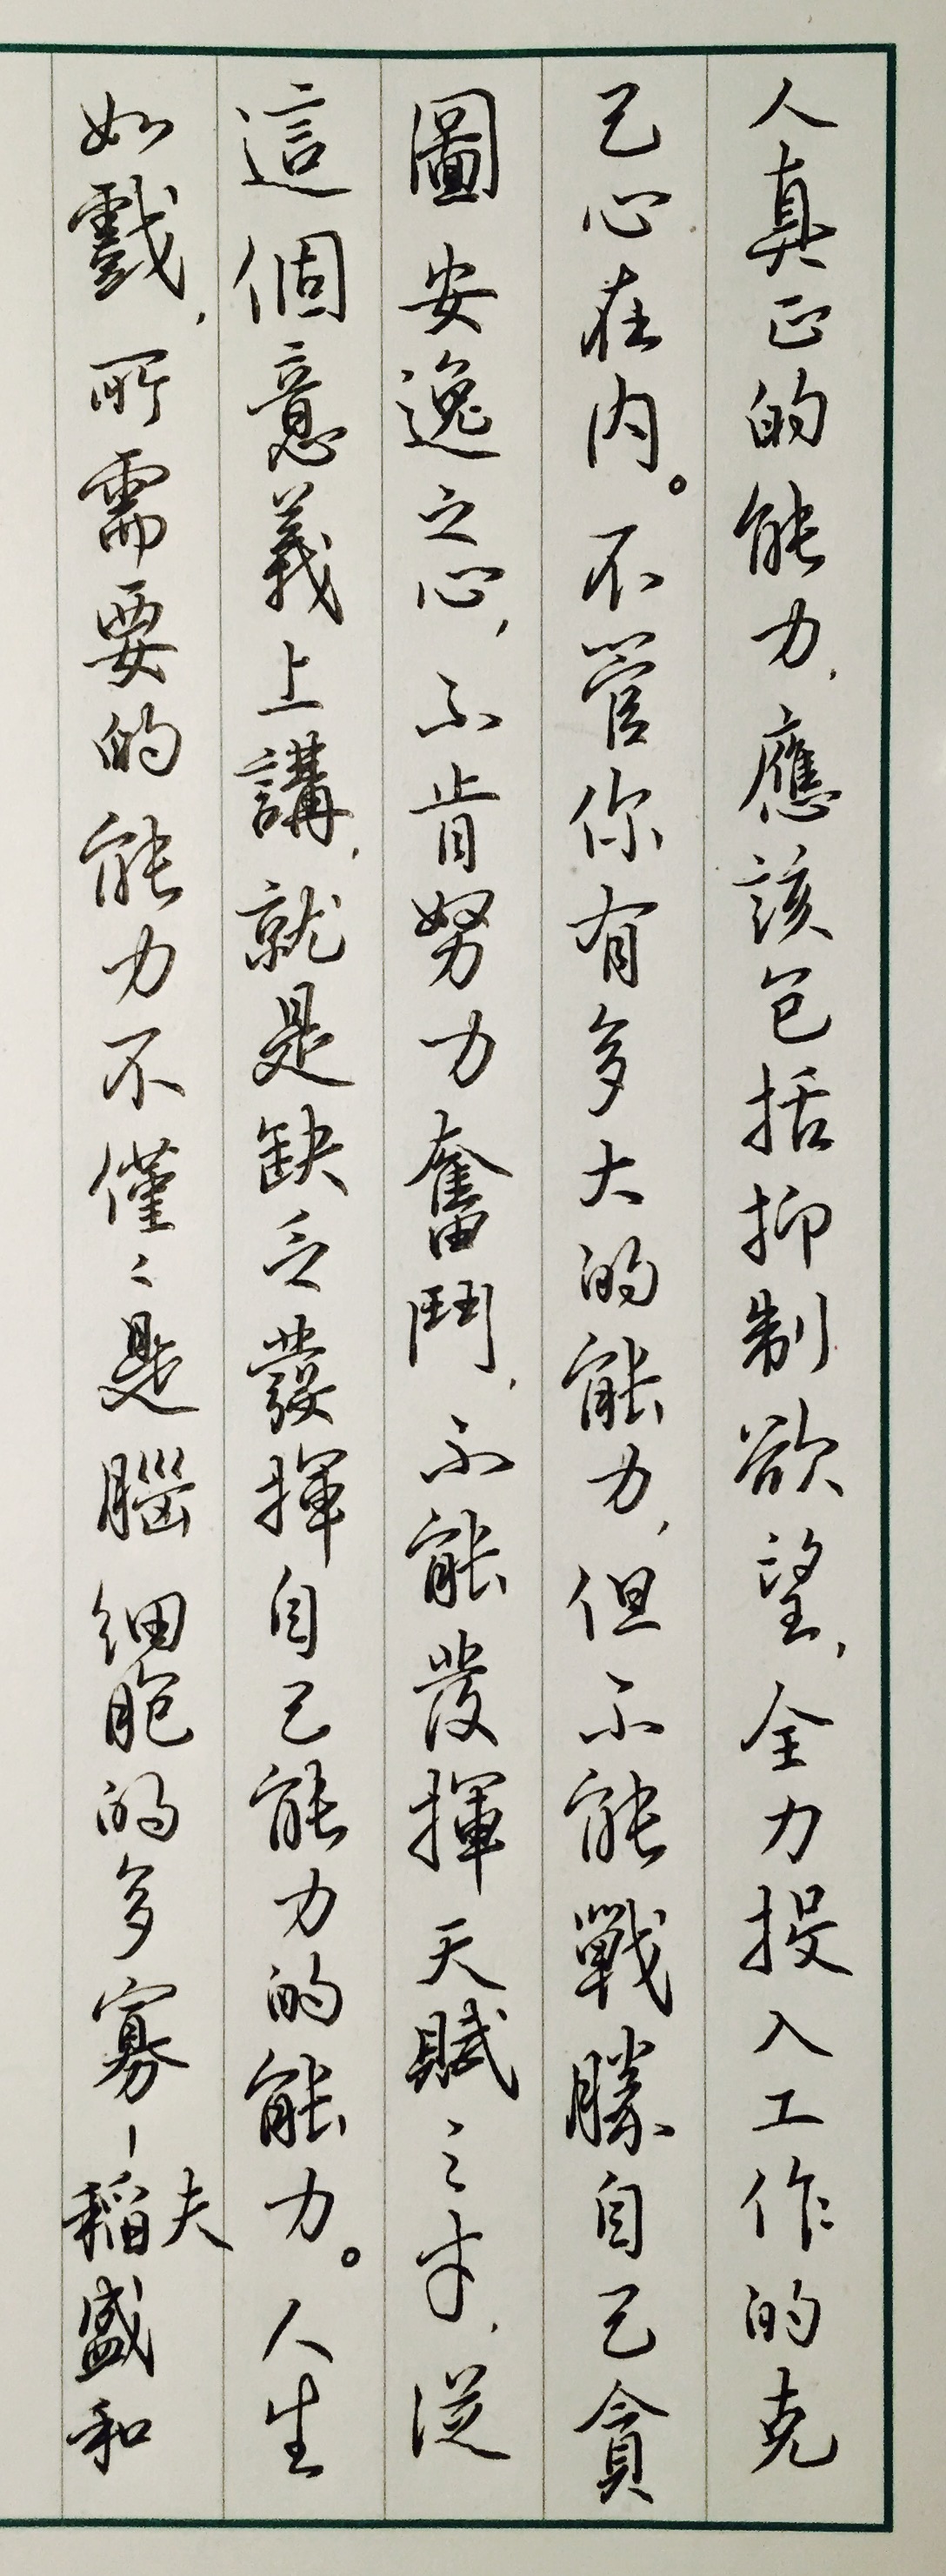 人真正的能力,應該包括抑制欲望,全力投入工作的克
己心在内。不管你有多大的能力,但不能戰勝自己貪
圖安逸之心,不肯努力奮鬥,不能發揮天賦之才,從
這個意義上講,就是缺乏發揮自己能力的能力。人生
如戲,所需要的能力不僅〻是腦細胞的多寡-稻盛和
夫